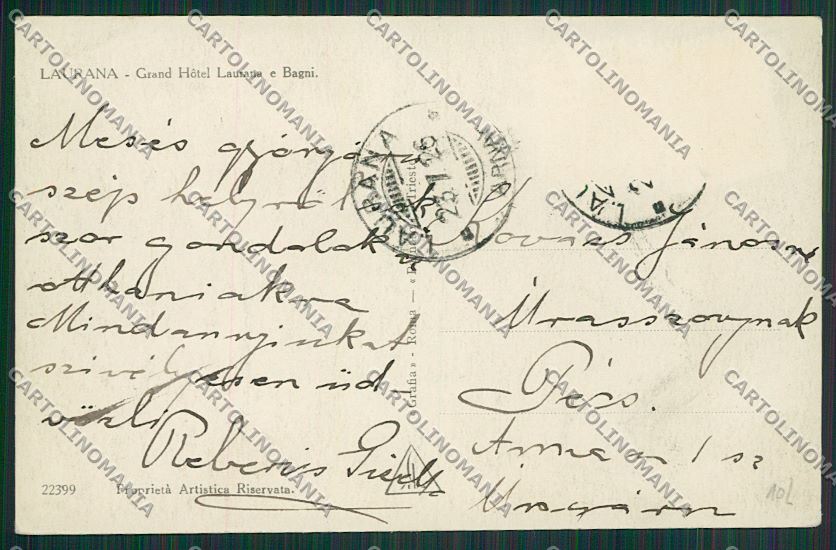 LAURANA - Grand Hôtel Laurana e Bagni.
Mesés gyönyörű
szép helyről sok
szor gondolok
otthaniakra
Mindannyiukat
szivélyesen üd
vözli
LAURANA
LAURANA
Kovács Jánosné
Úrasszonynak
Pécs.
Anna u 1 sz
Ungarn
Grafia» - Roma
22399 Proprietà Artistica Riservata.
10L
CARTOLINOMANIA